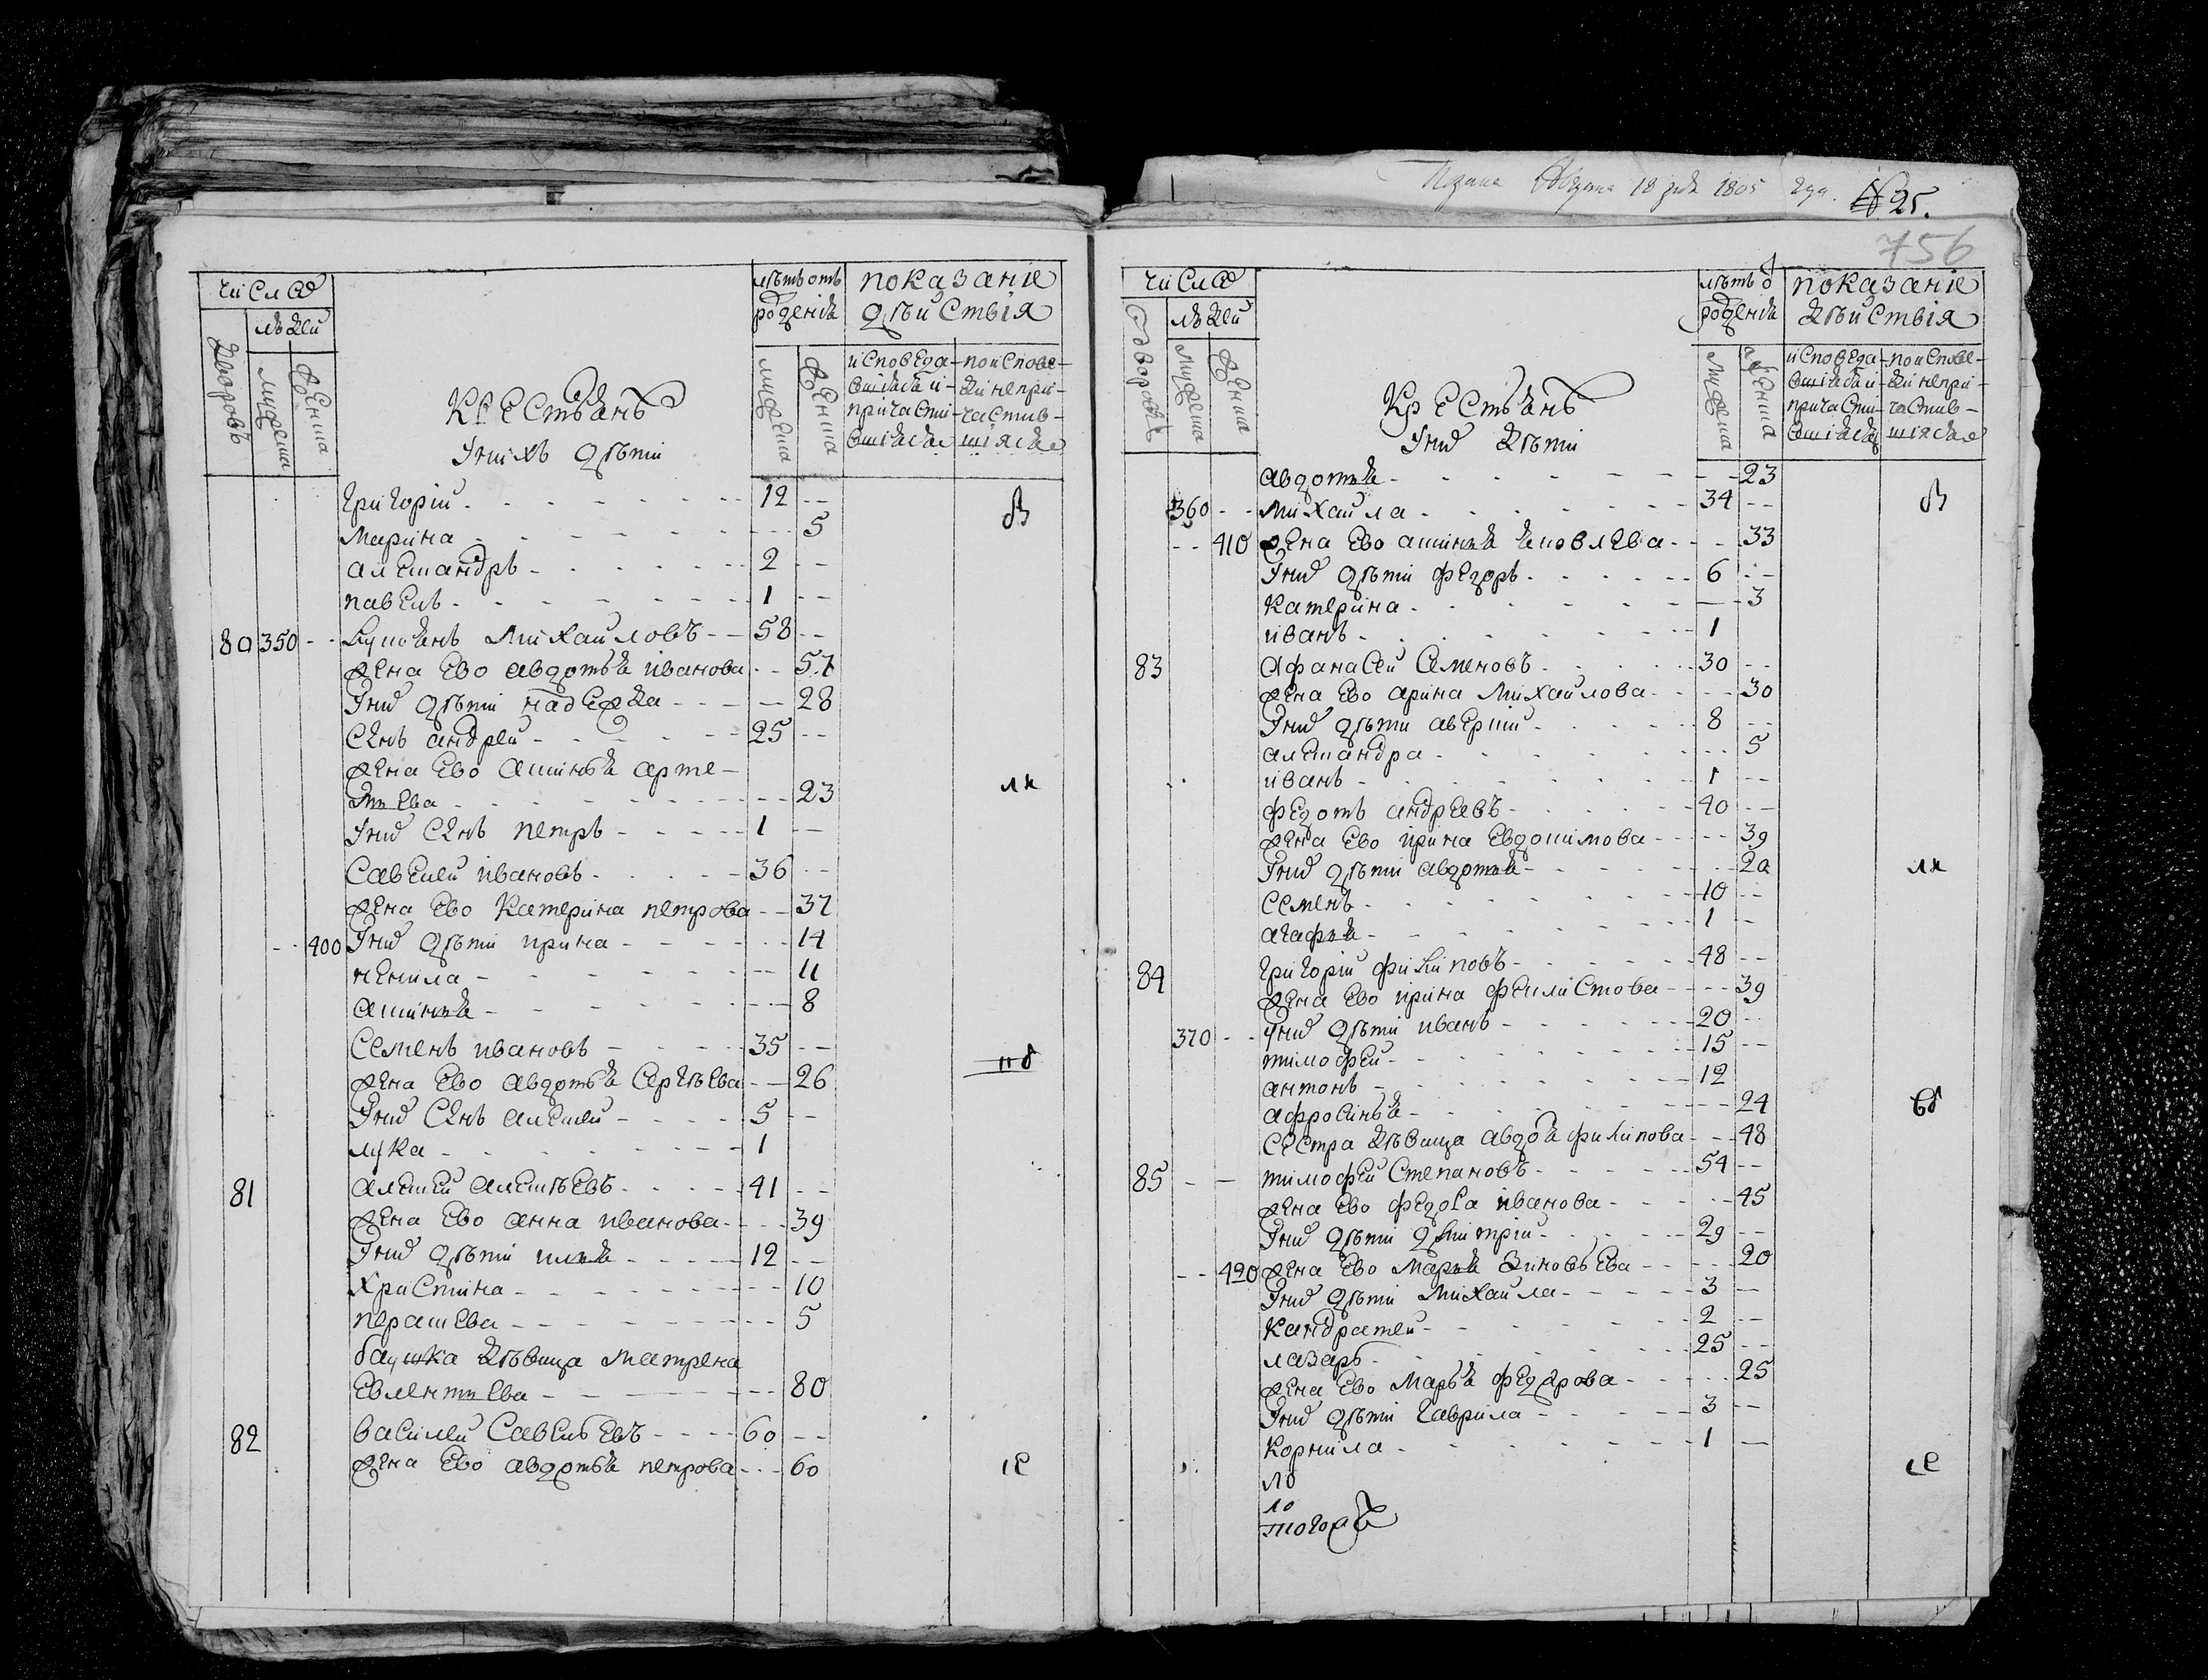 число
людей
дворовъ
мужеска
женска
крестьянъ
Iихъ дѣти
лѣтъ отъ
рожденiя
мужеска
женска
показанiе
дѣйствiя
исповеда-
вшiяся и
причасти-
вшiяся
по испове-
ди непри-
частив-
шiяся
григорiй 12
марина 5
александръ 2
павелъ 1
80 350 михайловъ 58
жена ево авдотья иванова 57
Iхъ дѣти надежда 28
сынъ андрей 25
жена ево аксинья арте-
мьева 23
Iхъ сынъ петръ 1
савелей ивановъ 36
жена ево катерина петрова 37
400 Iхъ дѣти ирина 14
ненила 11
аксинья 8
семенъ ивановъ 35
жена ево авдотья сергѣева 26
Iхъ сынъ алексей 5
лука 1
81 алексей алексѣевъ 41
жена ево анна иванова 39
Iхъ дѣти илья 12
христина 10
пераскева 5
баушка вдовица матрена
евлентьева 80
82 василей савельевъ 60
жена ево авдотья петрова 60
№ 25.
756
число
людей
дворовъ
мужеска
женска
крестьянъ
Iхъ дѣти
лѣтъ о
рожденiя
мужеска
женска
показанiе
дѣйствiя
исповеда-
вшiяся и
причасти-
вшiяся
по испове-
ди непри-
частив-
шiяся
авдотья 23
360 михайла 34
410 жена ево аксинья яковлева 33
Iхъ дѣти федоръ 6
катерина 3
иванъ 1
83 афанасей семеновъ 30
жена ево арина михайлова 30
Iхъ дѣти аверкии 8
александра 5
иванъ 1
федотъ андреевъ 40
жена ево ирина евдокимова 39
Iхъ дѣти авдотья 20
семенъ 10
агафья 1
84 григорiй филиповъ 48
жена ево ирина феклистова 39
370 Iхъ дѣти иванъ 20
тимофей 15
антонъ 12
афросинья 24
сестра дѣвица авдотья филипова 48
85 тимофей степановъ 54
жена ево федосья иванова 45
Iхъ дѣти дмитрiй 29
420 жена ево марья зиновьева 20
Iхъ дѣти михайла 3
кандратей 2
лазарь 25
жена ево марья федорова 25
Iхъ дѣти гаврила 3
корнила 1